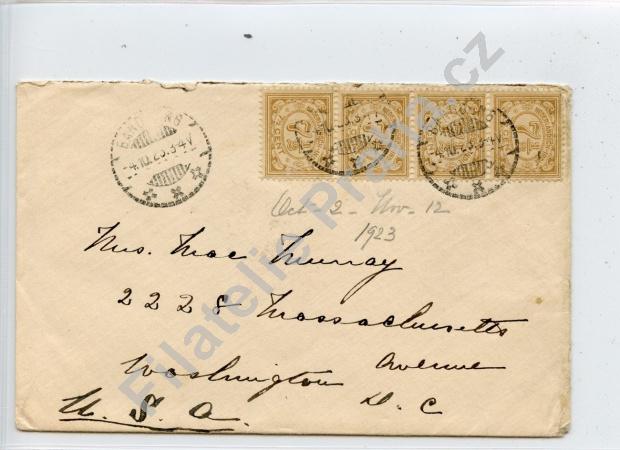 BANDOENG
4.10.23.3-4V
Oct - 2 - Nov. 12
1923
Mrs. Mac Murray
2228 Massachusetts
Avenue
Washington
D. C
U. S. A.
Filatelie Praha.cz